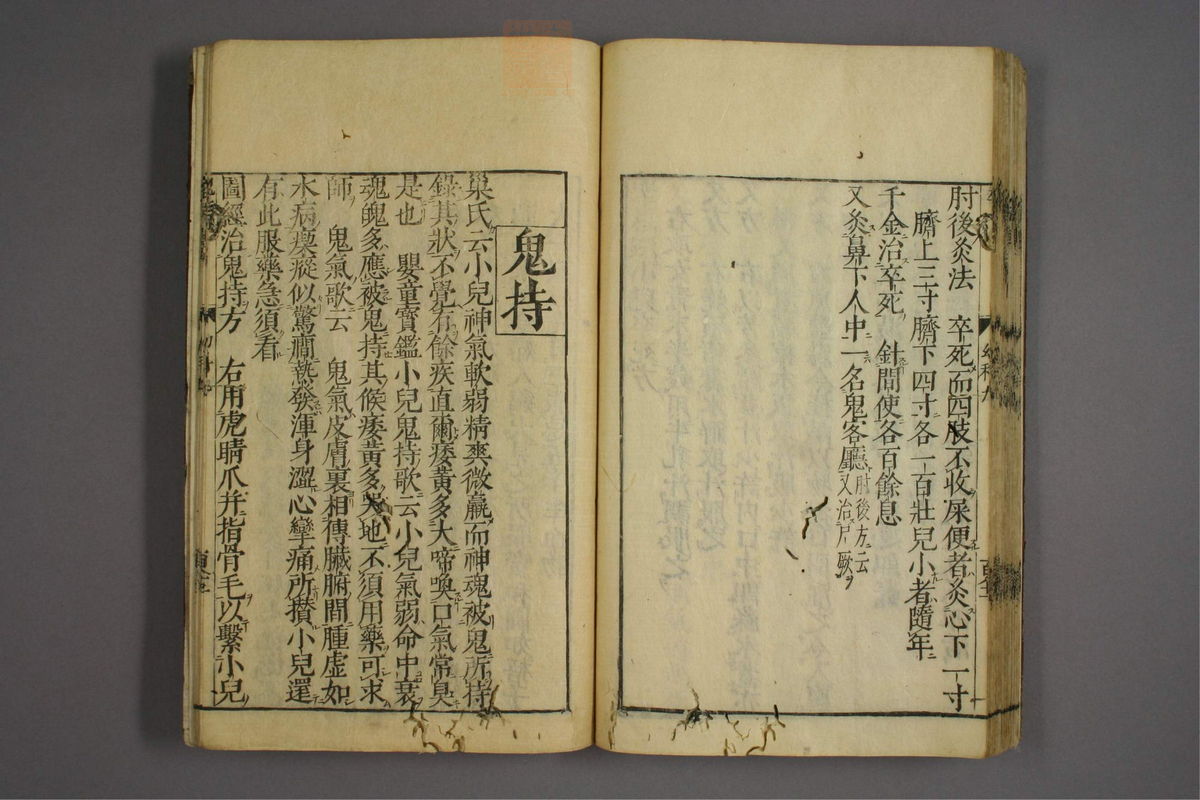 肘後灸法　卒死而四肢不收屎便者灸心下一寸
臍上三寸臍下四寸各一百壯兒小者隨年
千金治卒死　針間使各百餘息
又灸鼻下人中一名鬼客廳肘後方云又治尸厥
鬼持
巢氏云小兒神氣軟弱精爽微羸而神魂被鬼所持
錄其狀不覺有餘疾直爾痿黃多大啼喚口氣常臭
是也　嬰童寶鑑小兒鬼持歌云小兒氣弱命中衰
魂魄多應被鬼持其候痿黃多哭地不須用藥可求
師　鬼氣歌云　鬼氣皮膚裏相傳臟腑間腫虛如
水病瘈瘲似驚癇熱發渾身澀心攣痛所攢小兒還
有此服藥急須看
圖經治鬼持方　右用虎睛爪并指骨毛以繫小兒